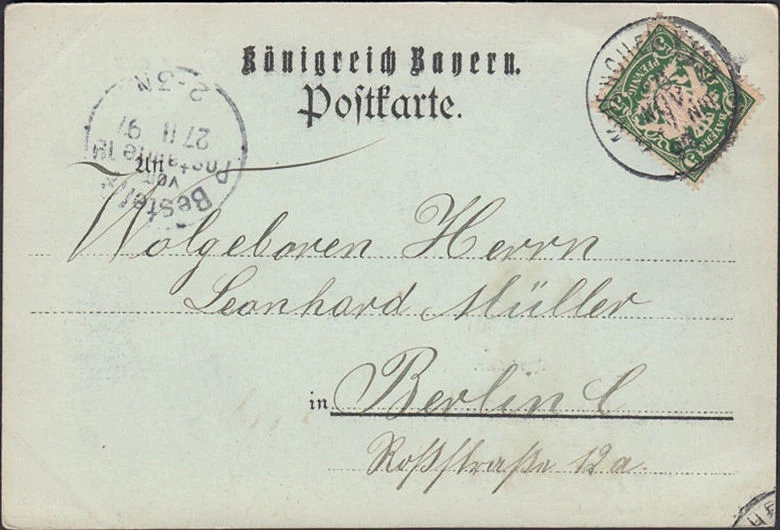 Königreich Bayern.
Postkarte.
Bestellt
vom
Postamte 19
27 11 97
2-3N
MÜNCHEN
5 PFENNIG
BAYERN
An
Wolgeboren Herrn
Leonhard Müller
in Berlin C
Roßstraße 12a.